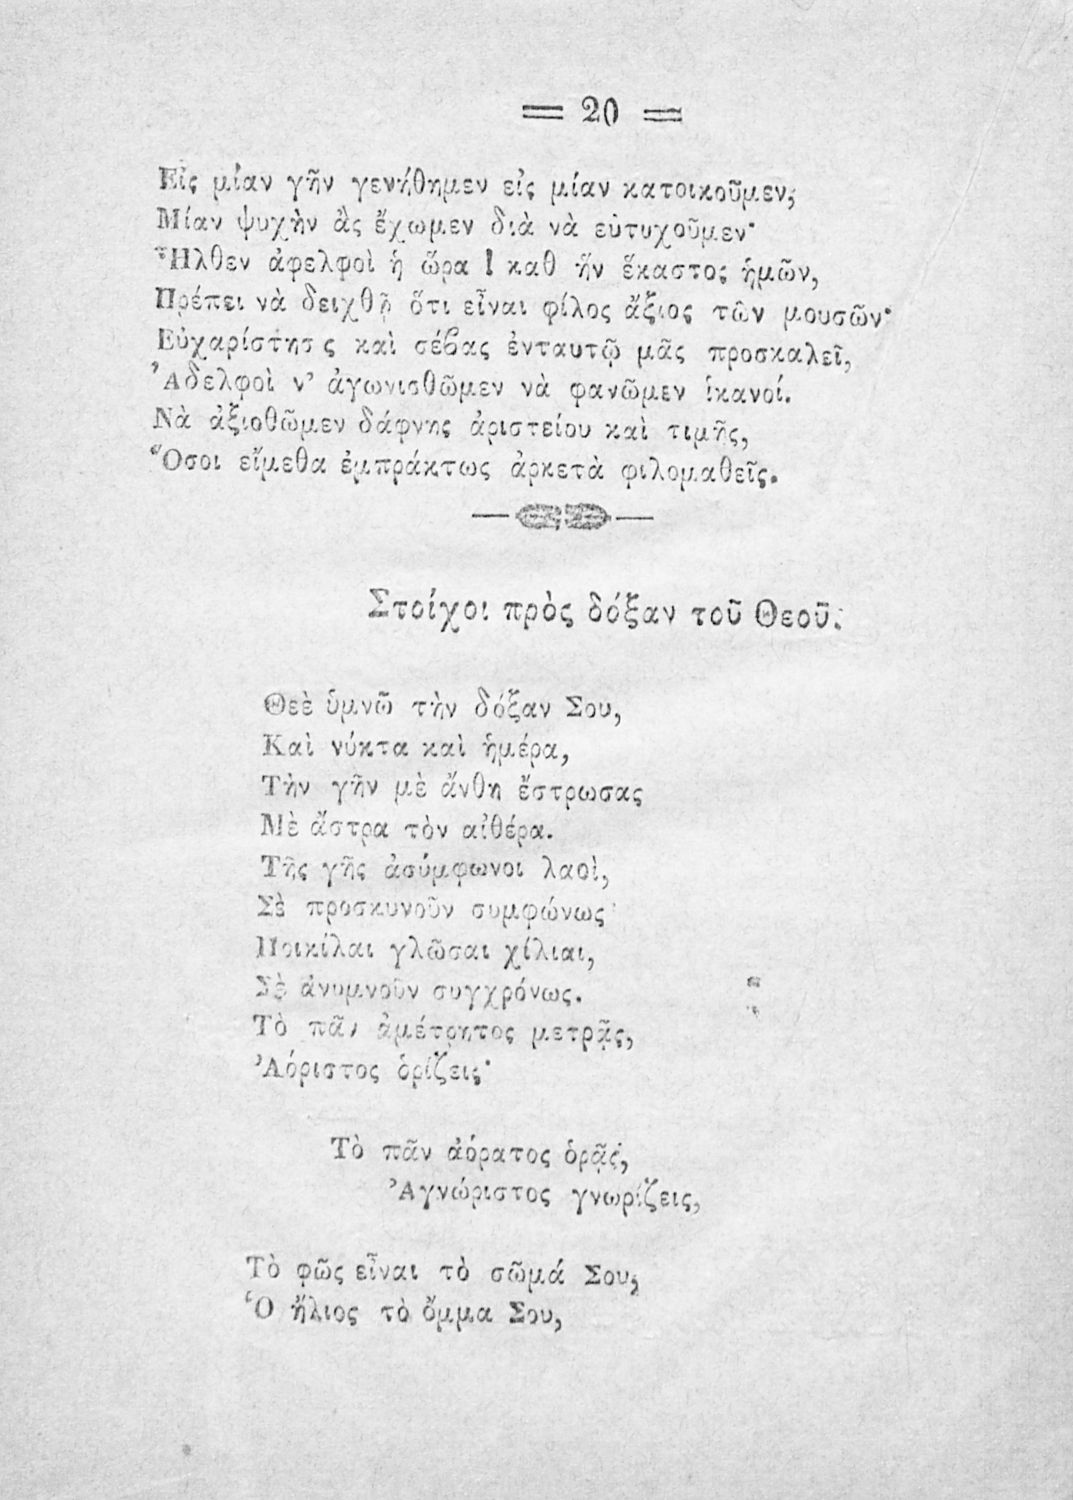 = 20 =
Εἰς μίαν γῆν γενήθημεν εἰς μίαν κατοικοῦμεν,
Μίαν ψυχὴν ἂς ἔχωμεν διὰ νὰ εὐτυχοῦμεν·
Ἦλθεν ἀφελφοὶ ἡ ὥρα ! καθ ἥν ἕκαστος ἡμῶν,
Πρέπει νὰ δειχθῇ ὅτι εἶναι φίλος ἄξιος τῶν μουσῶν·
Εὐχαρίστησις καὶ σέβας ἐνταυτῷ μᾶς προσκαλεῖ,
Ἀδελφοὶ ν' ἀγωνισθῶμεν νὰ φανῶμεν ἱκανοί.
Νὰ ἀξιοθῶμεν δάφνης ἀριστείου καὶ τιμῆς,
Ὅσοι εἴμεθα ἐμπράκτως ἀρκετὰ φιλομαθεῖς.
Στοίχοι πρὸς δόξαν τοῦ Θεοῦ.
Θεὲ ὑμνῶ τὴν δόξαν Σου,
Καὶ νύκτα καὶ ἡμέρα,
Τὴν γῆν μὲ ἄνθη ἔστρωσας
Μὲ ἄστρα τὸν αἰθέρα.
Τῆς γῆς ἀσύμφωνοι λαοὶ,
Σὲ προσκυνοῦν συμφώνως·
Ποικίλαι γλῶσαι χίλιαι,
Σὲ ἀνυμνοῦν συγχρόνως.
Τὸ πᾶν ἀμέτρητος μετρᾷς,
Ἀόριστος ὁρίζεις·
Τὸ πᾶν ἀόρατος ὁρᾷς,
Ἀγνώριστος γνωρίζεις,
Τὸ φῶς εἶναι τὸ σῶμά Σου,
Ὁ ἥλιος τὸ ὄμμα Σου,